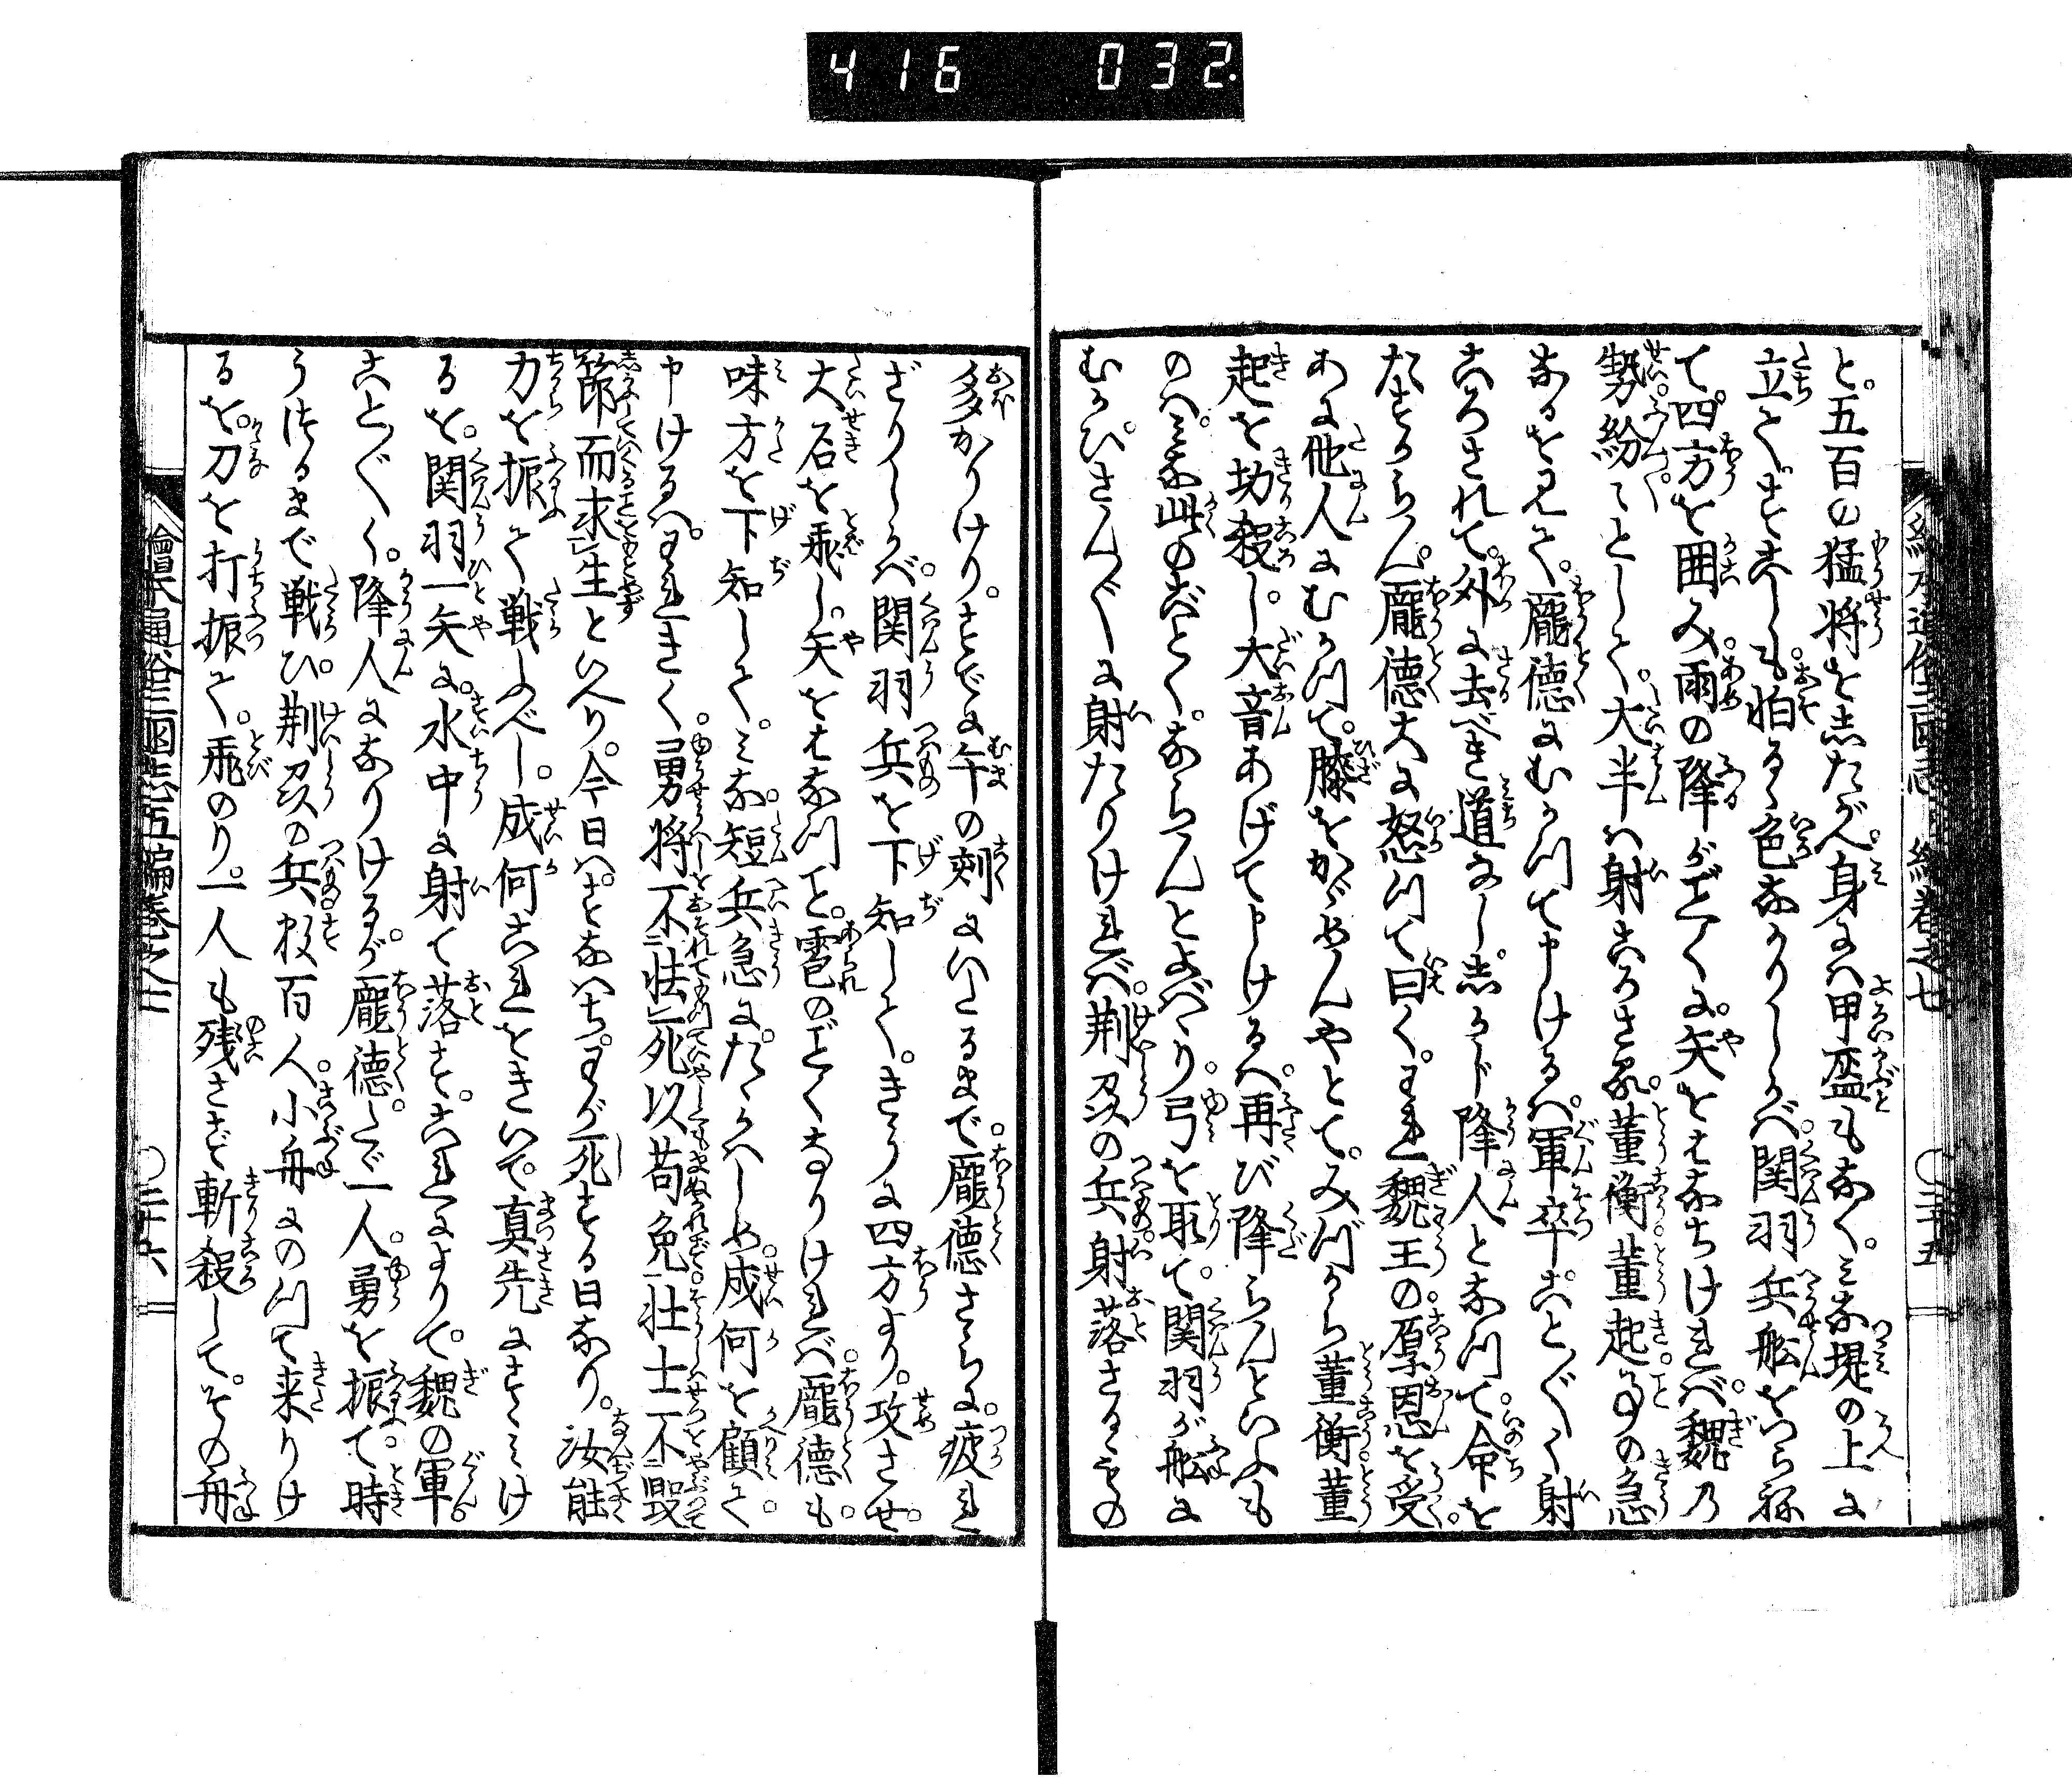 416 032
と。五百の猛将を志たがへ。身には甲盔もなく。みな堤の上に
立て。すこしも怕るゝ色なかりしかば。関羽兵舩をつらね
て。四方を囲み。雨の降がごとくに。矢をはなちければ。魏の
勢。紛〻として。大半は射ころさる。董衡董起。事の急
なるを見て。龐徳にむかつて申けるは。軍卒ことごとく射
ころされて。外に去べき道なし。志かじ降人となつて。命を
たすからん。龐徳大に怒つて曰く。われ魏王の。厚恩を受
あに他人にむかつて。膝をかゞめんやとて。みづから董衡董
起を切殺し。大音あげて申けるは。再び降らんといふも
のは。みな此のごとく。ならんとよばゝり。弓を取て。関羽が舩に
むかひ。さんざんに射たりければ。荆州の兵。射落さるゝもの
多かりけり。すでに午の刻にいたるまで。龐徳さらに。疲れ
ざりしかば。関羽兵を下知して。きうに四方より。攻させ。
大石を飛し。矢をはなつこと。雹のごとくなりければ。龐徳も。
味方を下知して。みな。短兵急に。たゝかはしめ。成何を顧て。
申けるは。われきく。勇将不怯死以苟免。壮士不毀
節而求生といへり。今日は。すなはち。わが死する日なり。汝能
力を振て戦ふべし。成何これをきいて。真先にすゝみけ
るを。関羽一矢に。水中に射て落す。これによりて。魏の軍。
ことごとく。降人になりけるが。龐徳。たゞ一人。勇を振て。時
うつるまで戦ひ。荆州の兵数百人。小舟にのつて来りけ
るを。刀を打振て。飛のり。一人も残さず斬殺して。その舟